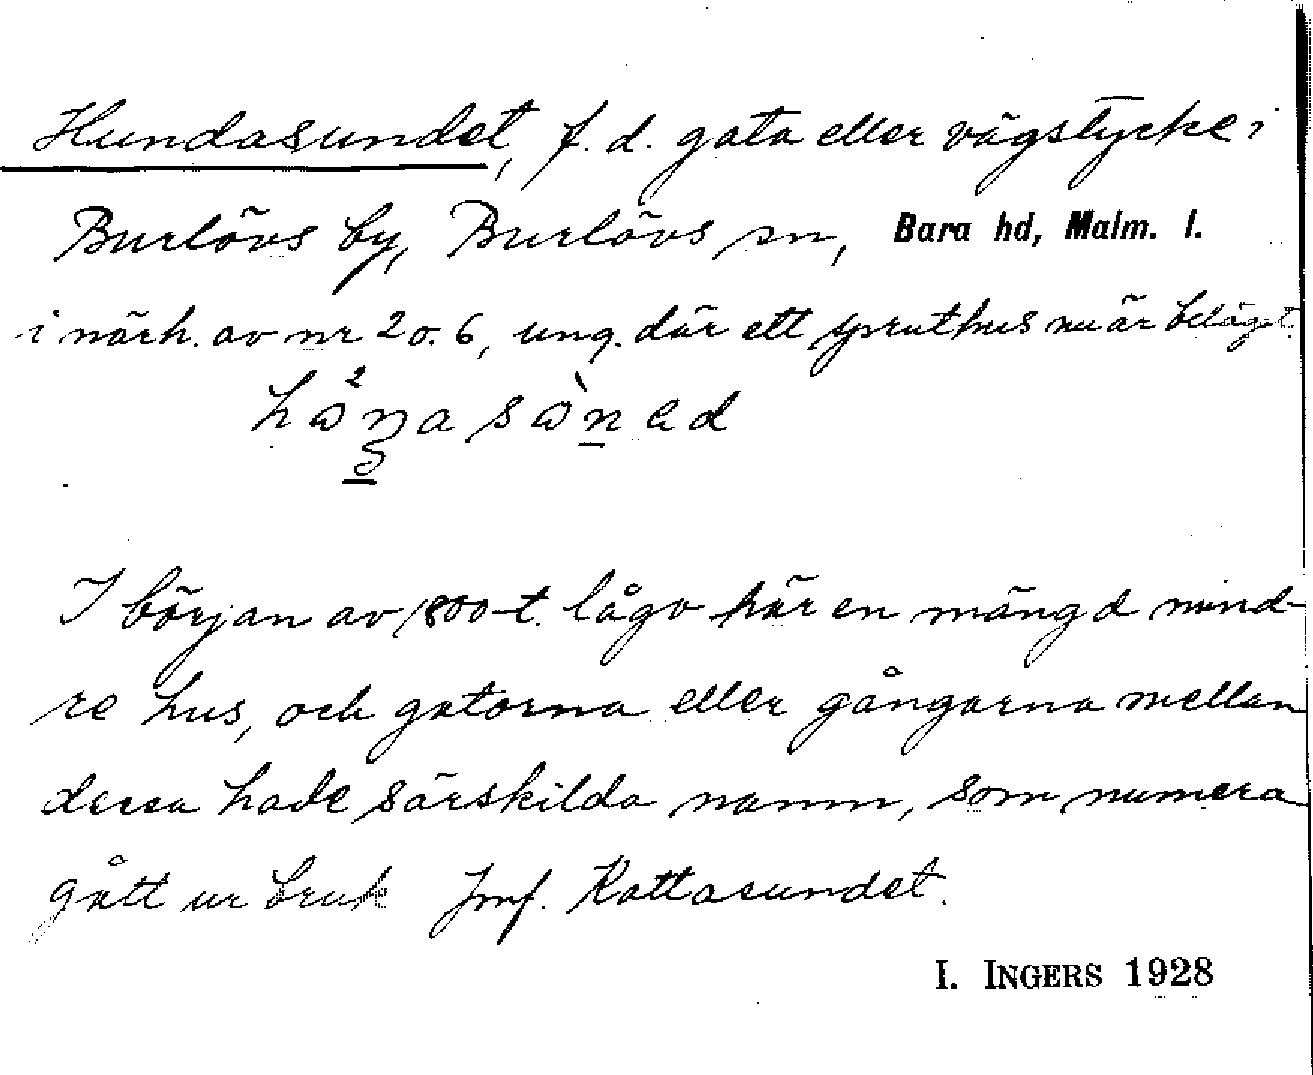 Hundasundet, f. d. gata eller vägstycke i
Burlövs by, Burlövs sn, Bara hd, Malm. l.
i närh. av nr 2 o. 6, ung. där ett spruthus nu är beläget.
I början av 1800-t. lågo här en mängd mind-
re hus, och gatorna eller gångarna mellan
dessa hade särskilda namn, som numera
gått ur bruk Jmf. Kattasundet.
I. INGERS 1928